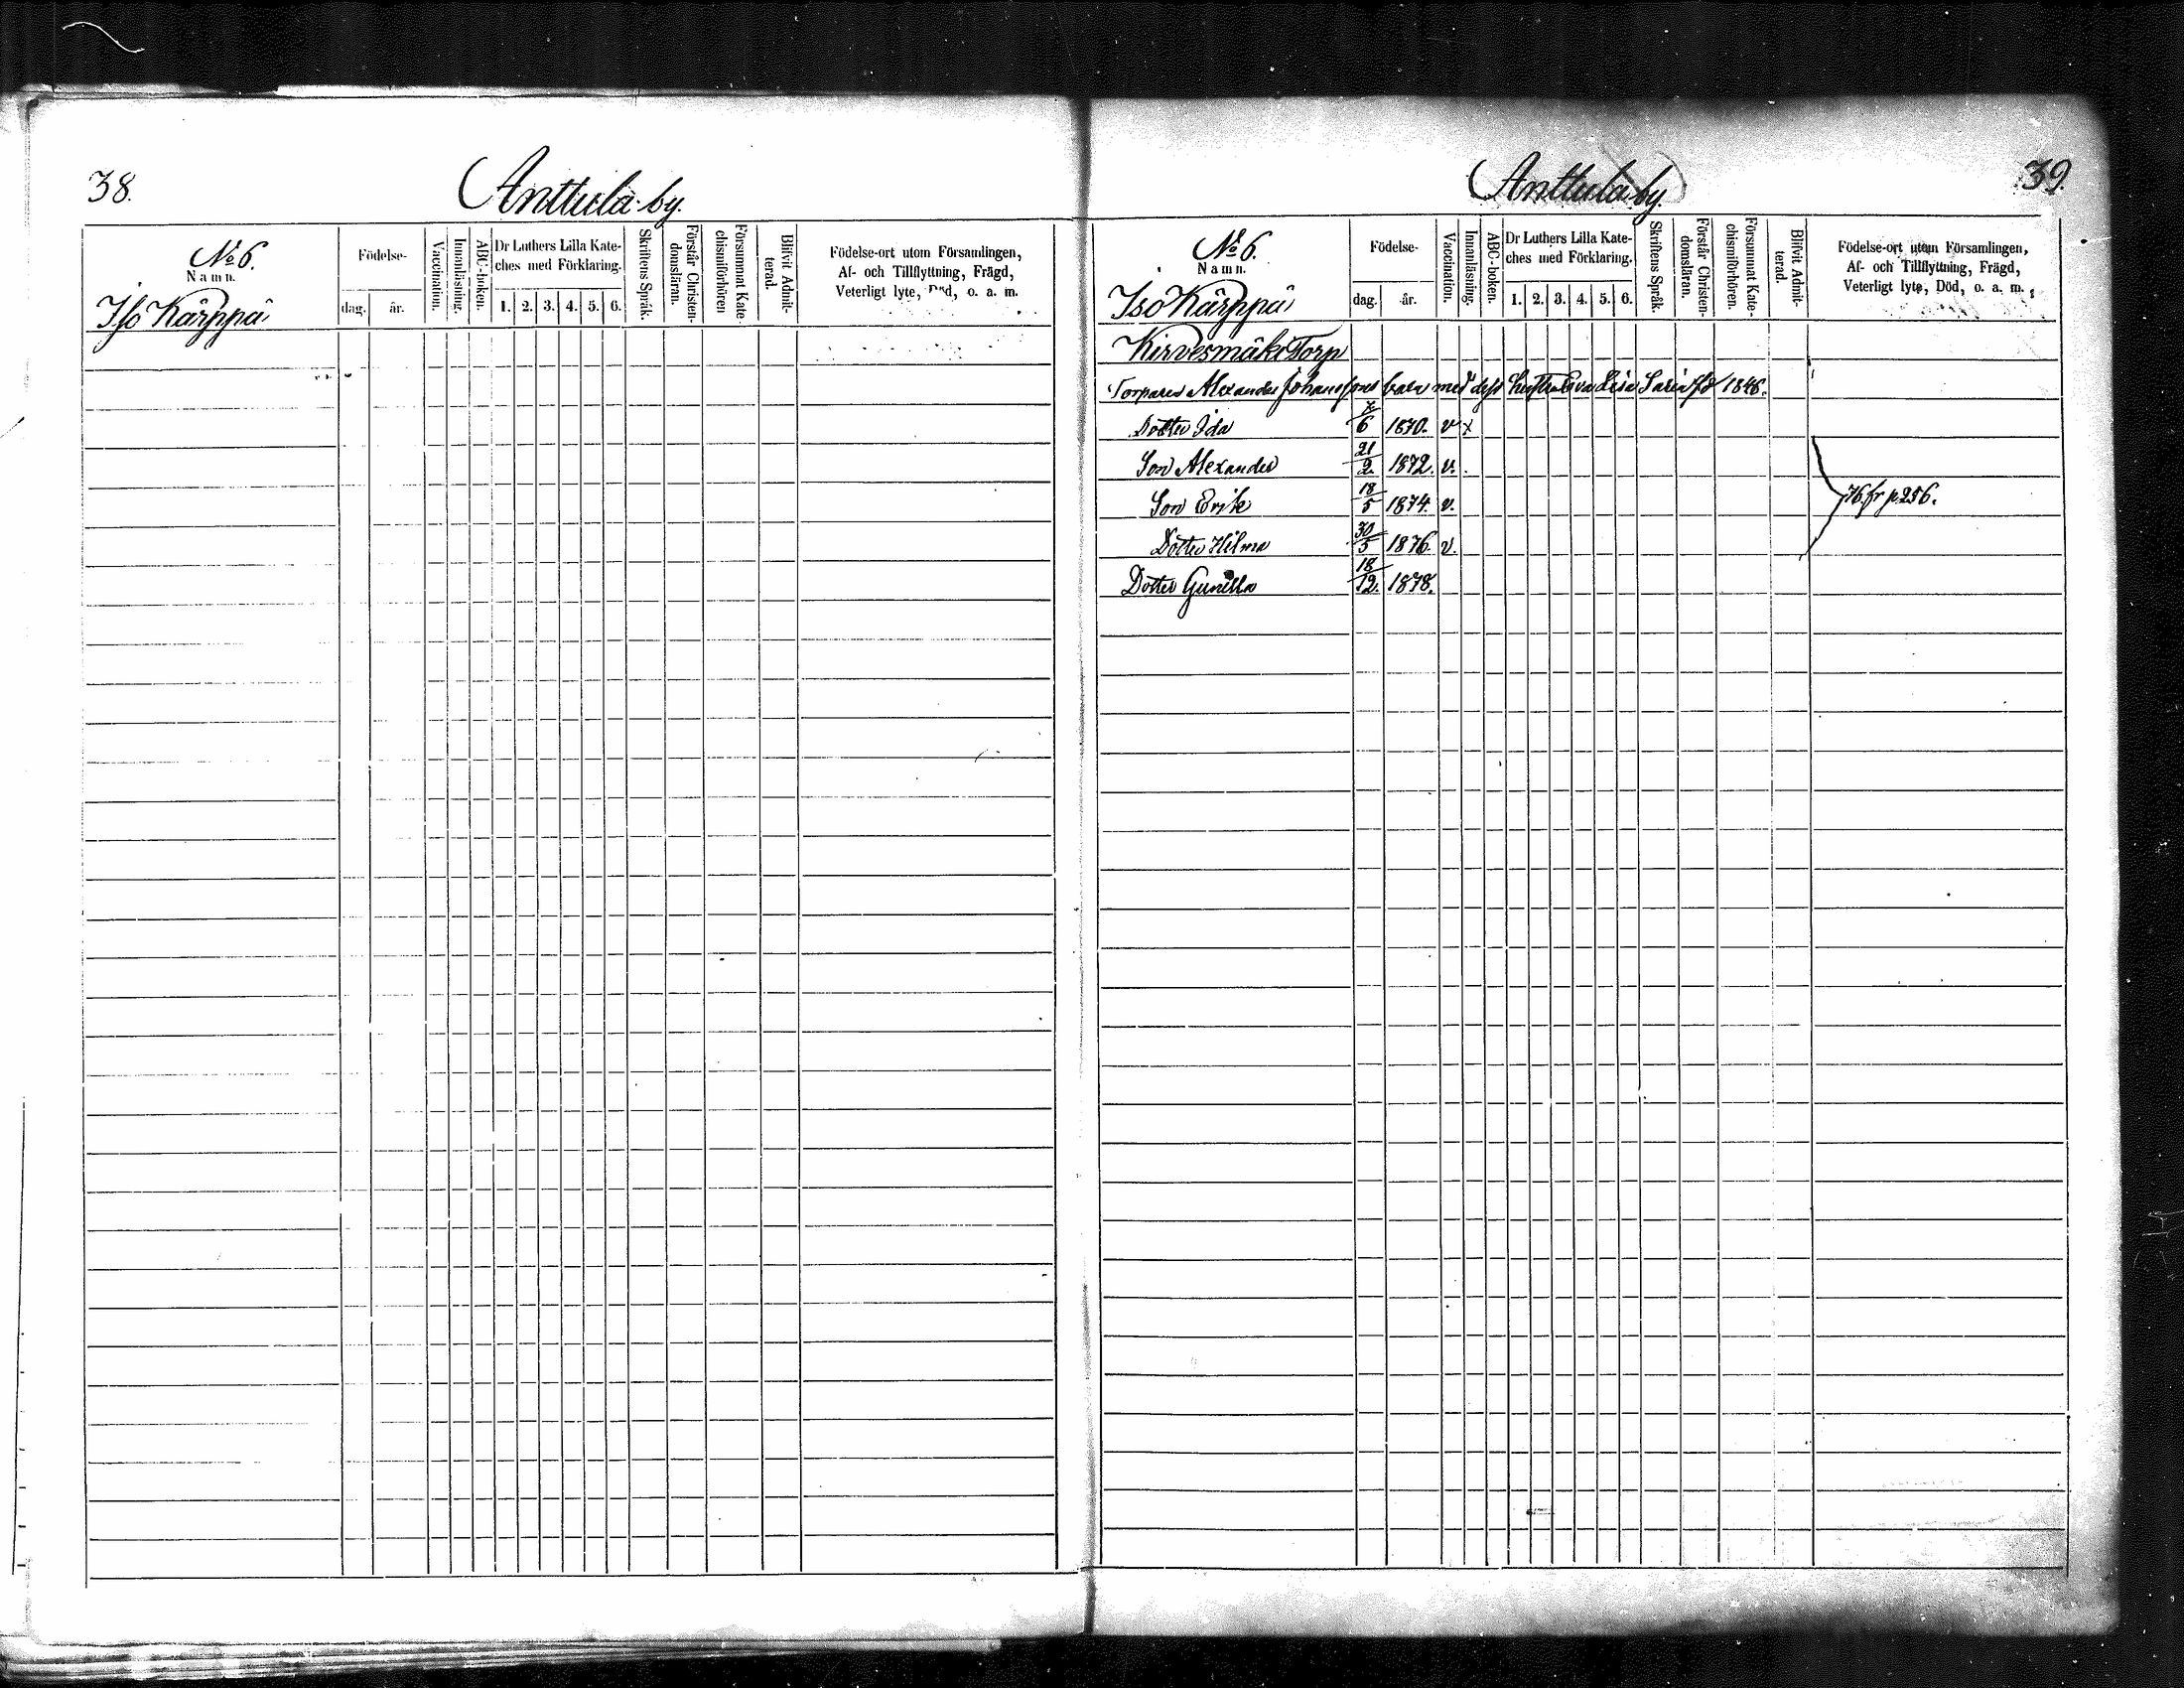 38.
Anttula by.
№ 6.
Namn.
Iso Kärppä
Födelse-
dag. år.
Vaccination.
Innanläsning.
ABC-boken.
Dr Luthers Lilla Kate-
ches med Förklaring.
1. 2. 3. 4. 5. 6.
Skriftens Språk.
Förstår Christen-
domsläran.
Försummat Kate-
chismiförhören
Blifvit Admit-
terad.
Födelse-ort utom Församlingen,
Af- och Tillflyttning, Frägd,
Veterligt lyte, Död, o. a. m.
39.
Anttula by.
№ 6.
Namn.
Iso Kärppä
Födelse-
dag. år.
Vaccination.
Innanläsning.
ABC-boken.
Dr Luthers Lilla Kate-
ches med Förklaring.
1. 2. 3. 4. 5. 6.
Skriftens Språk.
Förstår Christen-
domsläran.
Försummat Kate-
chismiförhören.
Blifvit Admit-
terad.
Födelse-ort utom Församlingen,
Af- och Tillflyttning, Frägd,
Veterligt lyte, Död, o. a. m.
Kirvesmäki Torp
Torparen Alexander Johanssons barn med dess hustru Eva Lisa 1846.
Dotter Ida 7/6 1870. v x
Son Alexander 21/2. 1872. v.
Son Erik 18/5 1874. v. 76 fr p. 256.
Dotter Hilma 30/5 1876. v.
Dotter Gunilla 18/12. 1878.